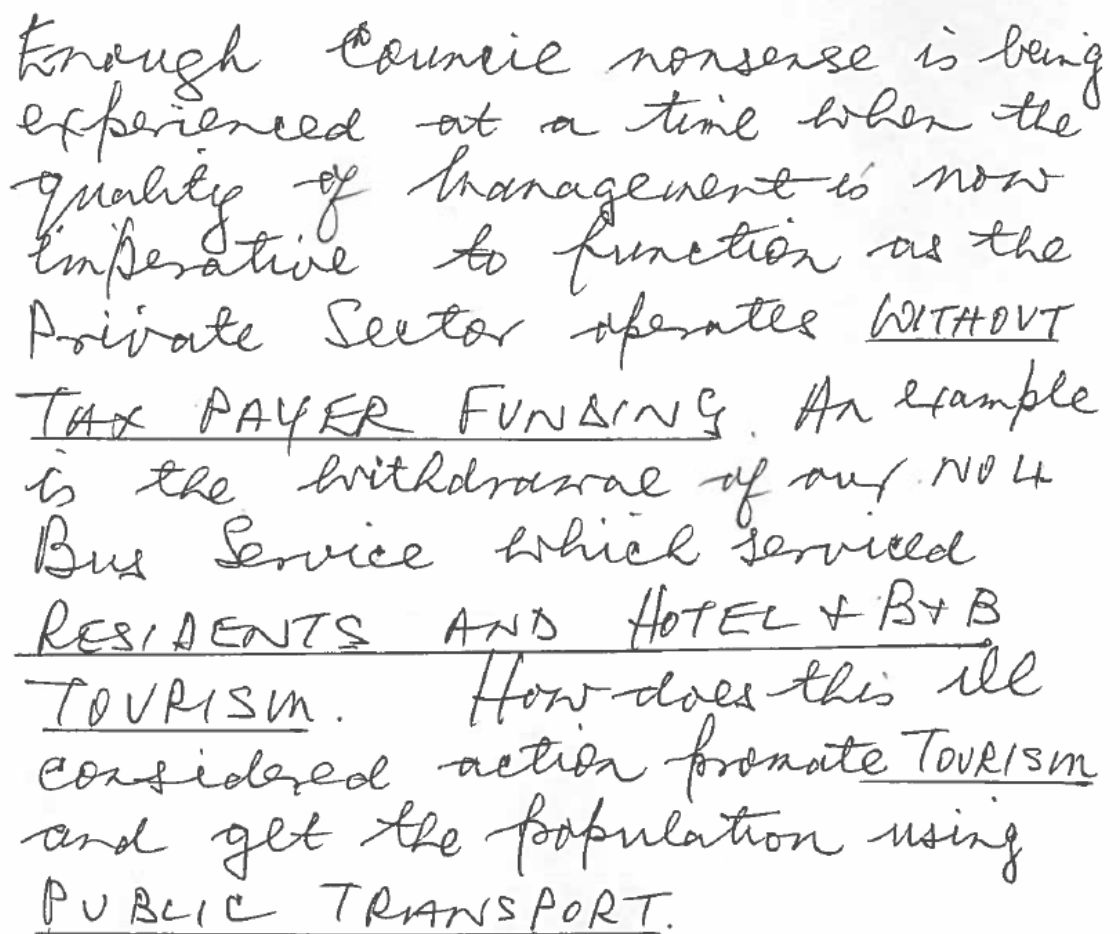 Enough Council nonsense is being
experienced at a time when the
quality of management is now
imperative to function as the
Private Sector operates WITHOUT
TAX PAYER FUNDING. An example
is the withdrawal of our NO 4
Bus Service which serviced
RESIDENTS AND HOTEL + B+B
TOURISM. How does this ill
considered action promote TOURISM
and get the population using
PUBLIC TRANSPORT.